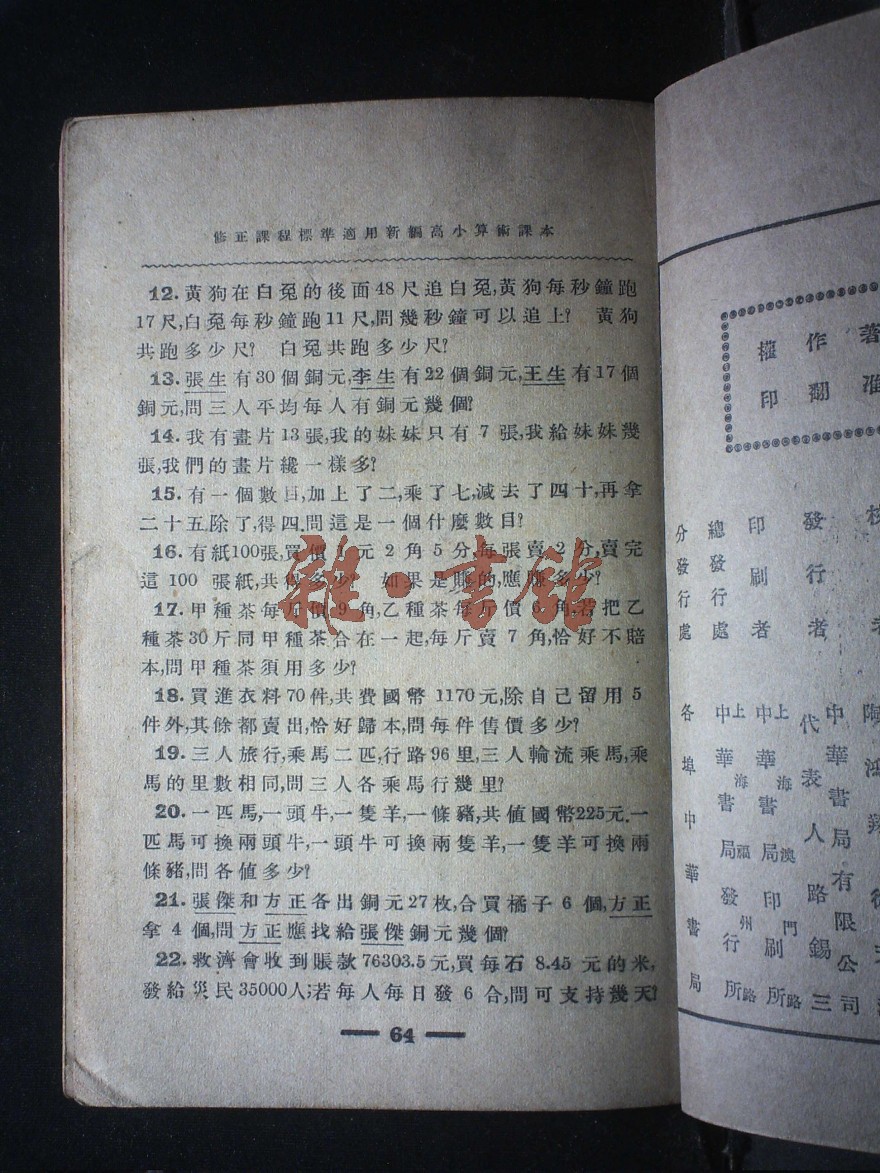 修正課程標準適用新編高小算術課本
12. 黃狗在白兔的後面48尺追白兔,黃狗每秒鐘跑
17尺,白兔每秒鐘跑11尺,問幾秒鐘可以追上? 黃狗
共跑多少尺? 白兔共跑多少尺?
13. 張生有30個銅元,李生有22個銅元,王生有17個
銅元,問三人平均每人有銅元幾個?
14. 我有畫片13張,我的妹妹只有7張,我給妹妹幾
張,我們的畫片纔一樣多?
15. 有一個數目,加上了二,乘了七,減去了四十,再拿
二十五除了,得四.問這是一個什麼數目?
16. 有紙100張,買價1元2角5分,每張賣2分,賣完
這100張紙,共得多少? 如果是賺的,應賺多少?
17. 甲種茶每斤價9角,乙種茶每斤價6角,若把乙
種茶30斤同甲種茶合在一起,每斤賣7角,恰好不賠
本,問甲種茶須用多少?
18. 買進衣料70件,共費國幣1170元,除自己留用5
件外,其餘都賣出,恰好歸本,問每件售價多少?
19. 三人旅行,乘馬二匹,行路96里,三人輪流乘馬,乘
馬的里數相同,問三人各乘馬行幾里?
20. 一匹馬,一頭牛,一隻羊,一條豬,共值國幣225元.一
匹馬可換兩頭牛,一頭牛可換兩隻羊,一隻羊可換兩
條豬,問各值多少?
21. 張傑和方正各出銅元27枚,合買橘子6個,方正
拿4個,問方正應找給張傑銅元幾個?
22. 救濟會收到賬款76303.5元,買每石8.45元的米,
發給災民35000人;若每人每日發6合,問可支持幾天?
64
雜·書館
著作權
准翻印
發行者
中華書局有限公司
代表人路錫三
印刷者
上海澳門路
中華書局印刷所
總發行處
上海福州路
中華書局發行所
分發行處
各埠中華書局